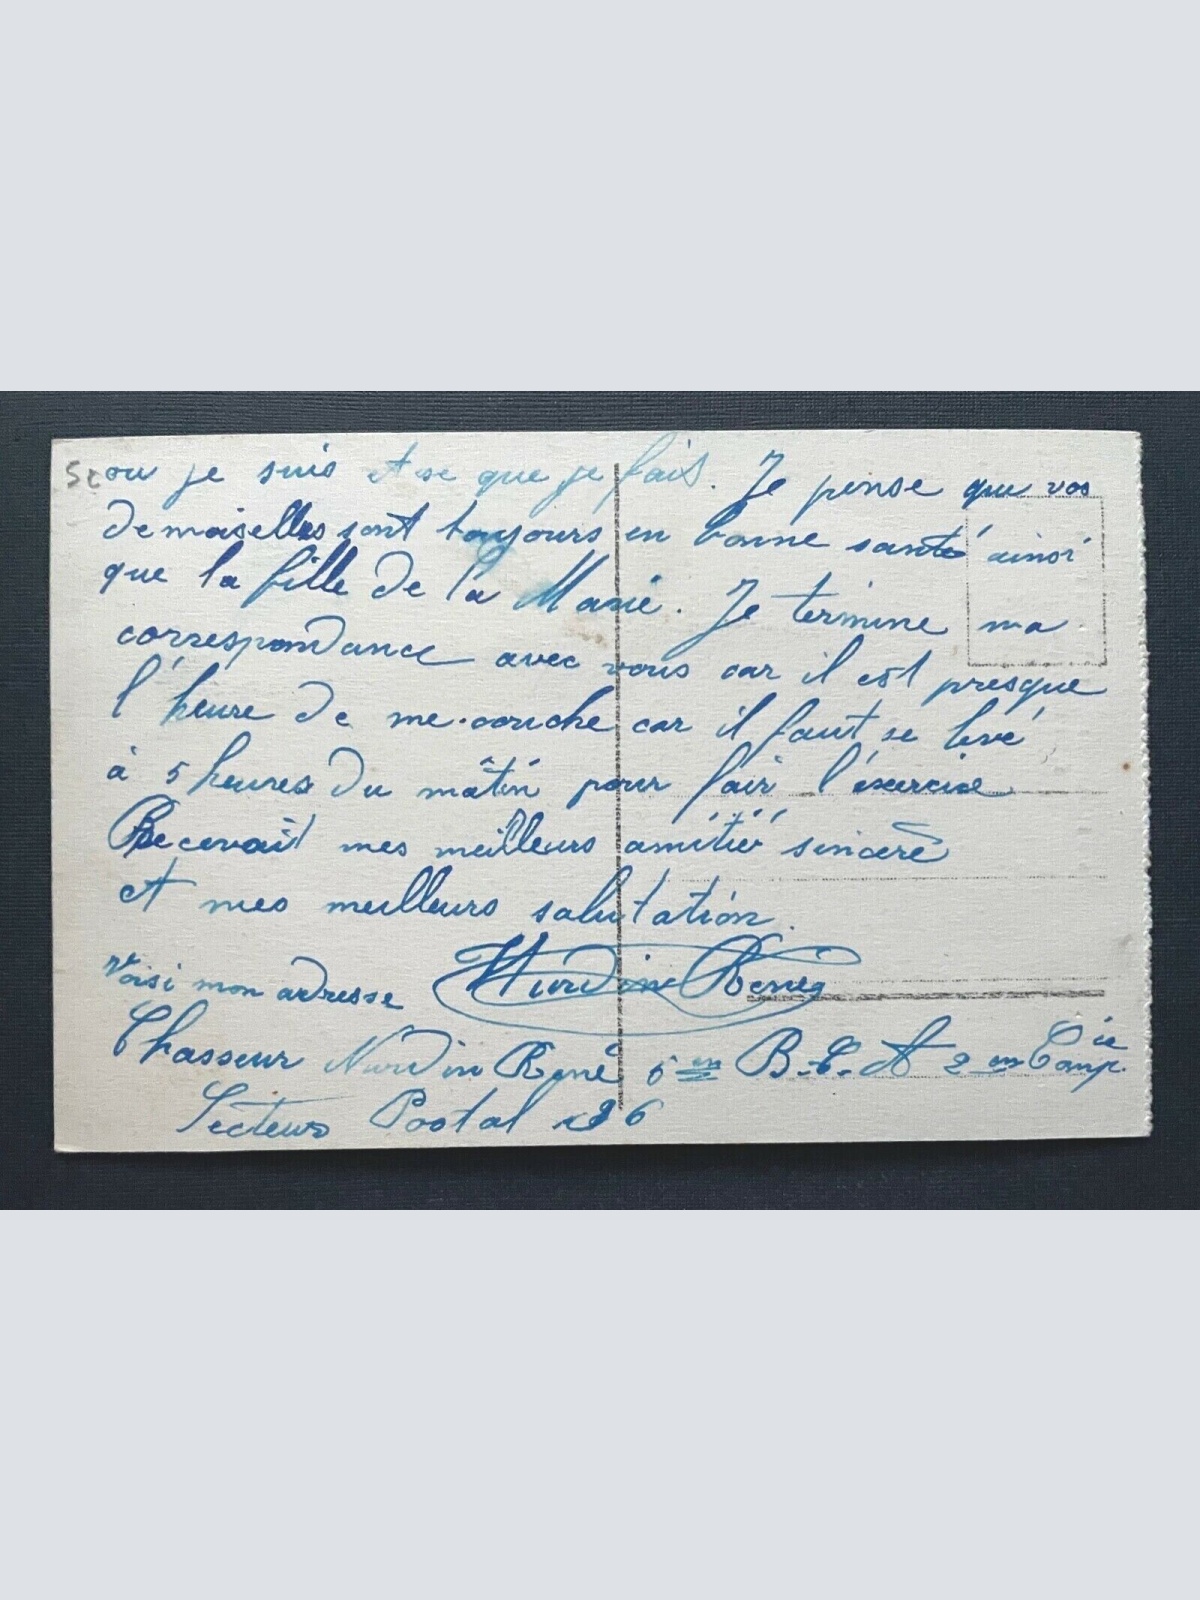 ou je suis et se que je fais. Je pense que vos
demoiselles sont toujours en bonne santé ainsi
que la fille de la Marie. Je termine ma
correspondance avec vous car il est presque
l'heure de me couche car il faut se levé
à 5 heures du mâtin pour fair l'éxercise
Recevait mes meilleurs amitié sincère
et mes meilleurs salutation.
Voisi mon adresse Nurdin René
Chasseur Nurdin René 6 em B.C.A 2 em Comp. ie
Secteur Postal 36